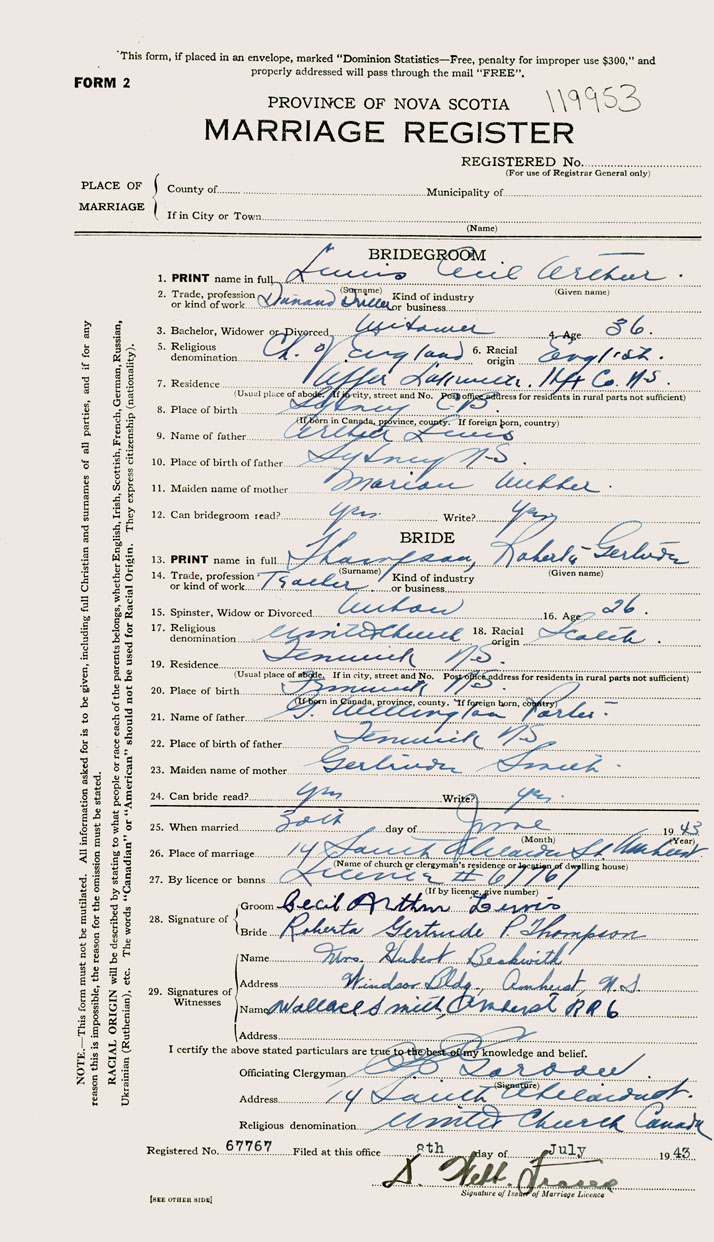 This form, if placed in an envelope, marked "Dominion Statistics—Free, penalty for improper use $300," and
properly addressed will pass through the mail "FREE".
FORM 2
PROVINCE OF NOVA SCOTIA 119953
MARRIAGE REGISTER
REGISTERED No.
(For use of Registrar General only)
PLACE OF MARRIAGE
County of Municipality of
If in City or Town
(Name)
BRIDEGROOM
1. PRINT name in full Lewis Cecil Arthur.
(Surname) (Given name)
2. Trade, profession or kind of work Diamond Driller Kind of industry or business
3. Bachelor, Widower or Divorced Widower 4. Age 36.
5. Religious denomination Ch. of England 6. Racial origin English.
7. Residence Upper Hfx Co. N.S.
(Usual place of abode. If in city, street and No. Post office address for residents in rural parts not sufficient)
8. Place of birth Sydney C.B.
(If born in Canada, province, county. If foreign born, country)
9. Name of father Arthur Lewis
10. Place of birth of father Sydney N.S.
11. Maiden name of mother Marion Webber.
12. Can bridegroom read? Yes. Write? Yes.
BRIDE
13. PRINT name in full Thompson, Roberta Gertrude
(Surname) (Given name)
14. Trade, profession or kind of work Teacher. Kind of industry or business
15. Spinster, Widow or Divorced Widow 16. Age 26.
17. Religious denomination United Church 18. Racial origin Scotch.
19. Residence Fenwick N.S.
(Usual place of abode. If in city, street and No. Post office address for residents in rural parts not sufficient)
20. Place of birth Fenwick N.S.
(If born in Canada, province, county. If foreign born, country)
21. Name of father Wellington Porter.
22. Place of birth of father Fenwick N.S.
23. Maiden name of mother Gertrude Smith.
24. Can bride read? Yes Write? Yes.
25. When married 30th day of June 1943
(Month) (Year)
26. Place of marriage 14 South St Amherst
(Name of church or clergyman's residence or location of dwelling house)
27. By licence or banns License # 67767
(If by licence, give number)
28. Signature of
Groom Cecil Arthur Lewis
Bride Roberta Gertrude P. Thompson
29. Signatures of Witnesses
Name Mrs. Hubert Beckwith
Address Windsor Bldg, Amherst, N.S.
Name Wallace Smith, Amherst RR6
Address
I certify the above stated particulars are true to the best of my knowledge and belief.
Officiating Clergyman
(Signature)
Address 14 South
Religious denomination United Church Canada
Registered No. 67767 Filed at this office 8th day of July 1943
D. Webb
Signature of Issuer of Marriage Licence
[SEE OTHER SIDE]
NOTE.—This form must not be mutilated. All information asked for is to be given, including full Christian and surnames of all parties, and if for any
reason this is impossible, the reason for the omission must be stated.
RACIAL ORIGIN will be described by stating to what people or race each of the parents belongs, whether English, Irish, Scottish, French, German, Russian,
Ukrainian (Ruthenian), etc. The words "Canadian" or "American" should not be used for Racial Origin. They express citizenship (nationality).